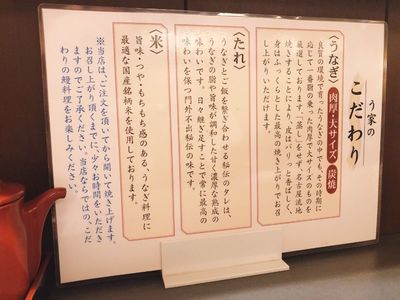 う家の
こだわり
〈うなぎ〉 肉厚・大サイズ 炭焼
良質の環境で育ったうなぎの中でも、その時期に
応じて一番脂の乗った肉厚で大サイズのものを
厳選しております。「蒸し」をせず、名古屋流地
焼きすることにより、皮はパリっと香ばしく、
身はふっくらとした最高の焼き上がりでお召
し上がりいただけます。
〈たれ〉
うなぎとご飯を結び合わせる秘伝のタレは、
うなぎの脂や旨味が調和した甘く濃厚な熟成の
味わいです。日々継ぎ足すことで常に最高の
味わいを保つ門外不出秘伝の味です。
〈米〉
旨味・つや・もちもち感のある、うなぎ料理に
最適な国産銘柄米を使用しております。
※当店は、ご注文を頂いてから開いて焼き上げます。
お召し上がり頂くまでに、少々お時間をいただき
ますのでご了承ください。当店ならではの、こだ
わりの鰻料理をお楽しみください。